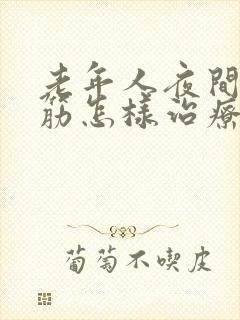 老年人夜間
筋怎樣治療
葡萄不喫皮